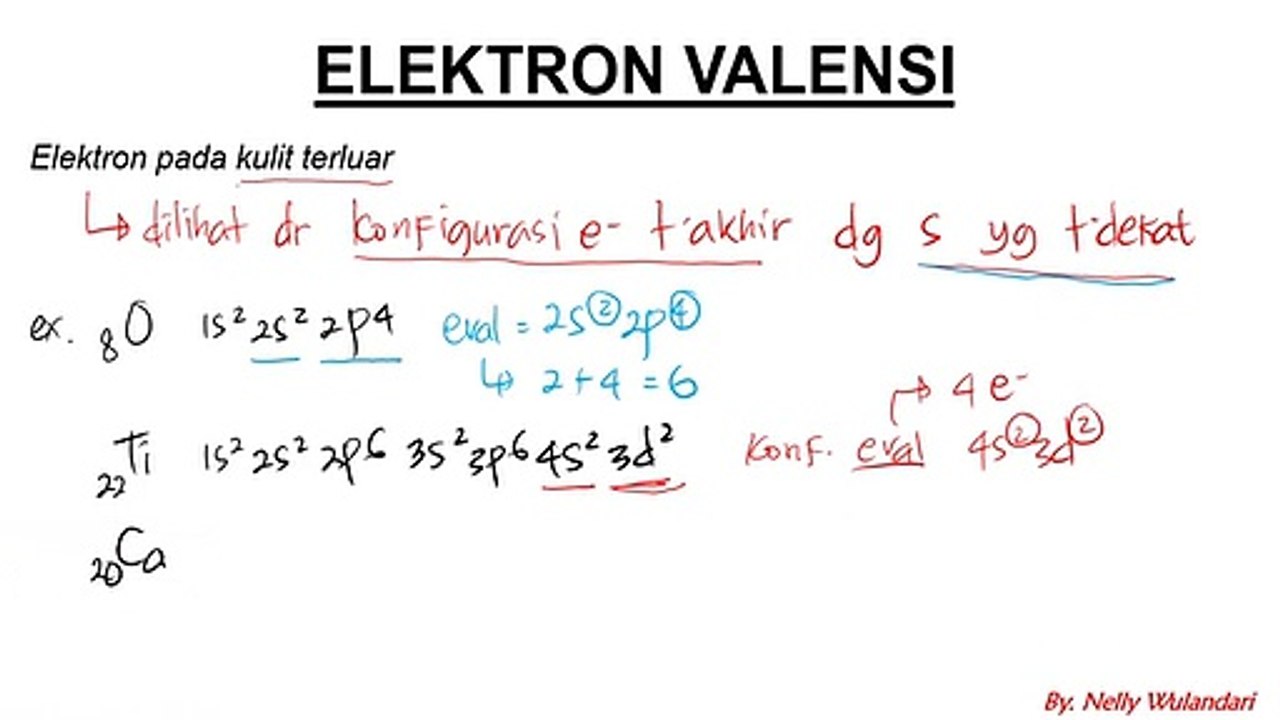 ELEKTRON VALENSI
Elektron pada kulit terluar
↳ dilihat dr konfigurasi e⁻ t·akhir dg s yg t·dekat
ex. ₈O 1s² 2s² 2p⁴ eval = 2s② 2p④
↳ 2 + 4 = 6
→ 4 e⁻
₂₂Ti 1s² 2s² 2p⁶ 3s² 3p⁶ 4s² 3d² konf. eval 4s② 3d②
₂₀Ca
By. Nelly Wulandari